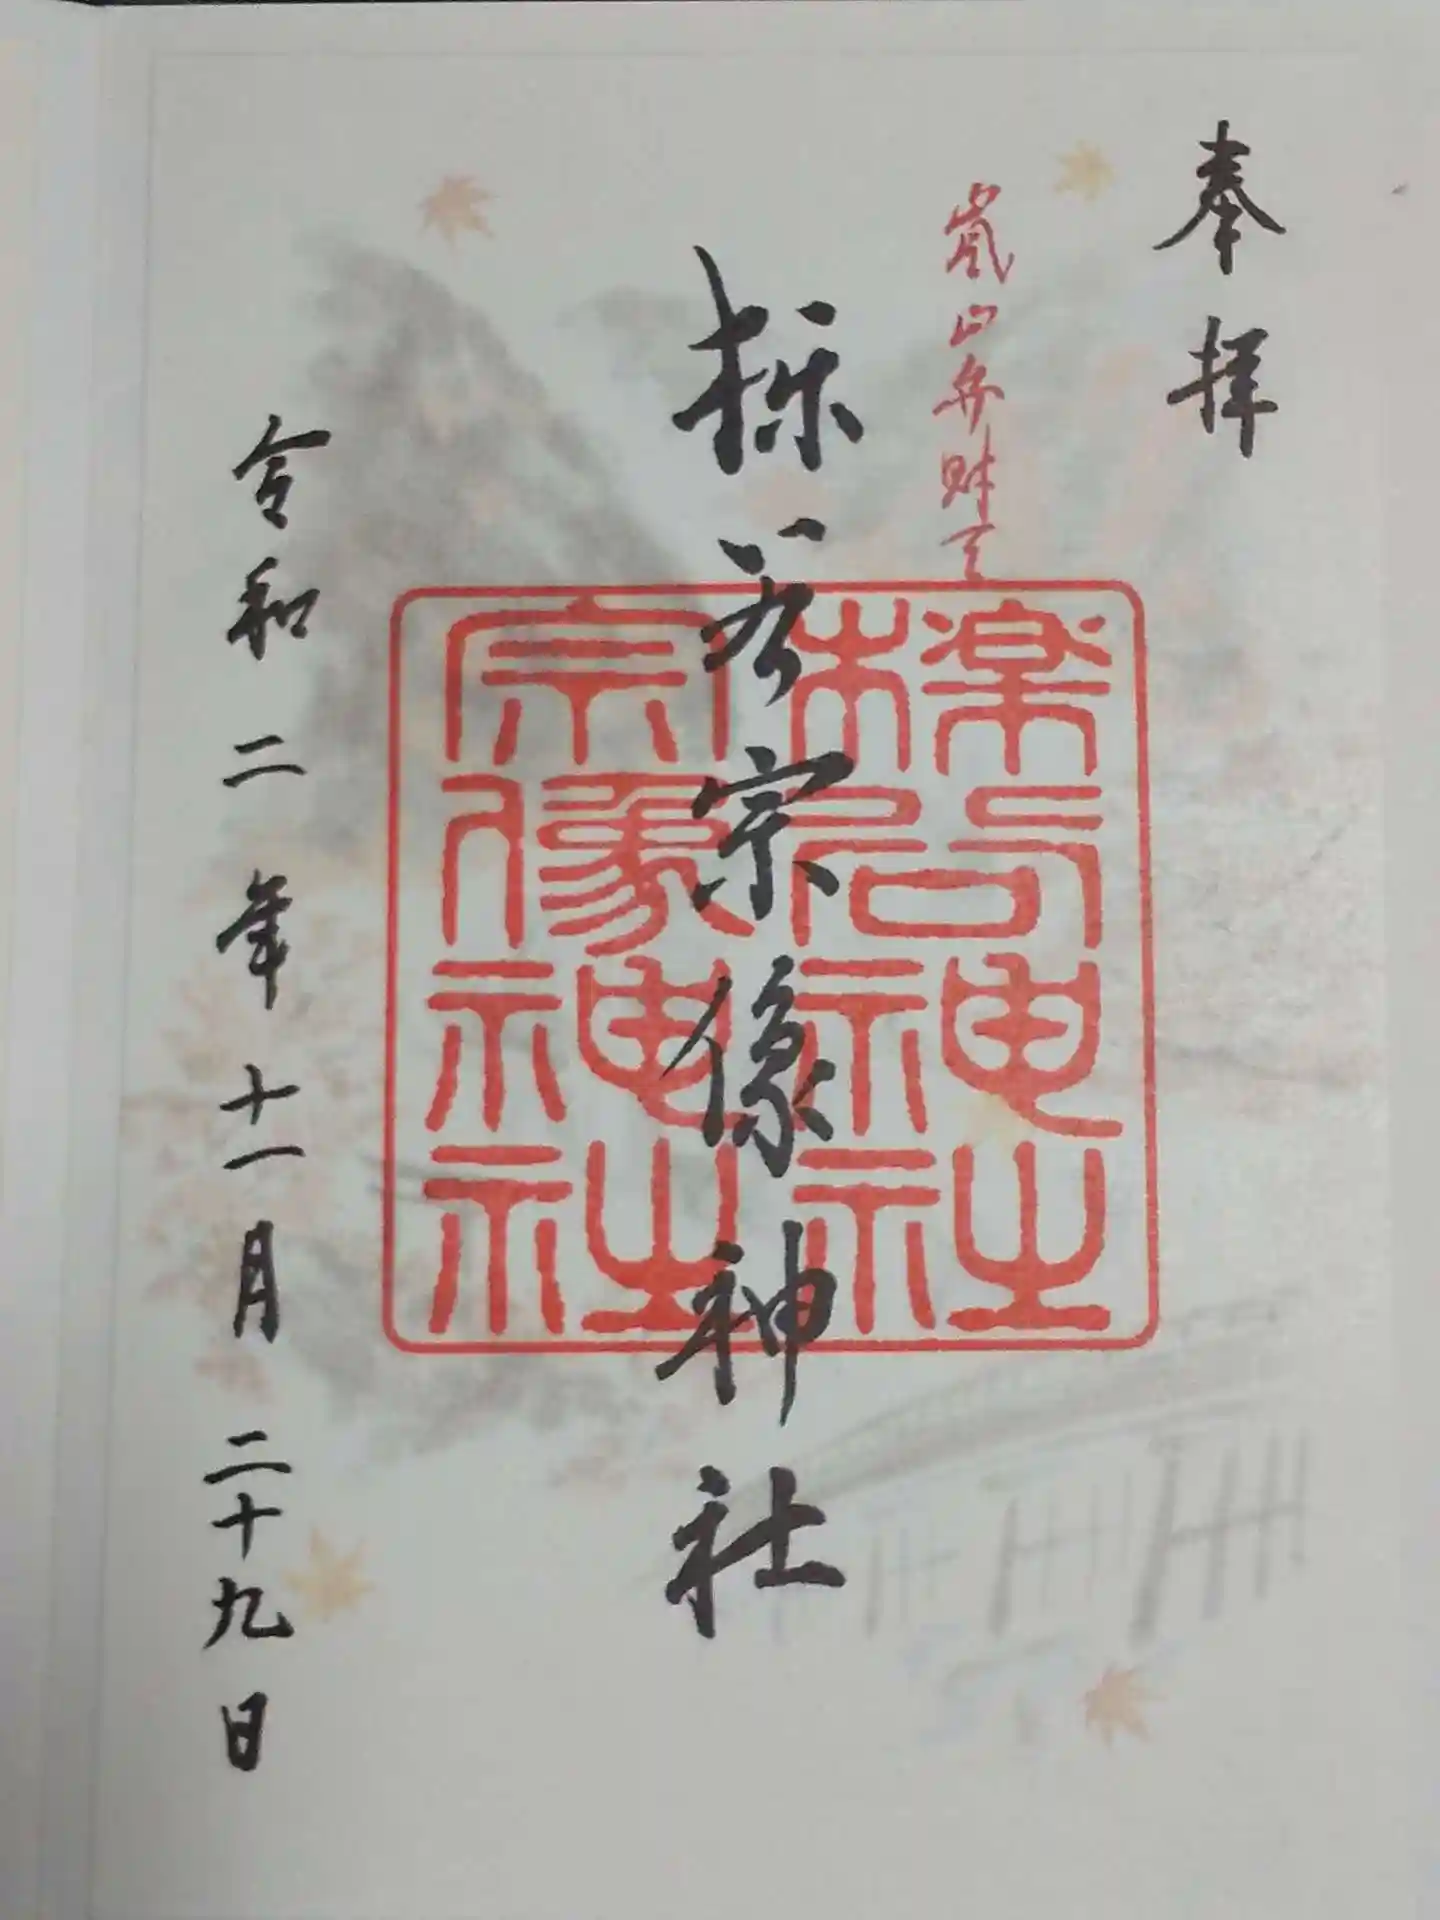 奉拝
嵐山弁財天
櫟谷宗像神社
櫟谷神社
宗像神社
令和二年十一月二十九日